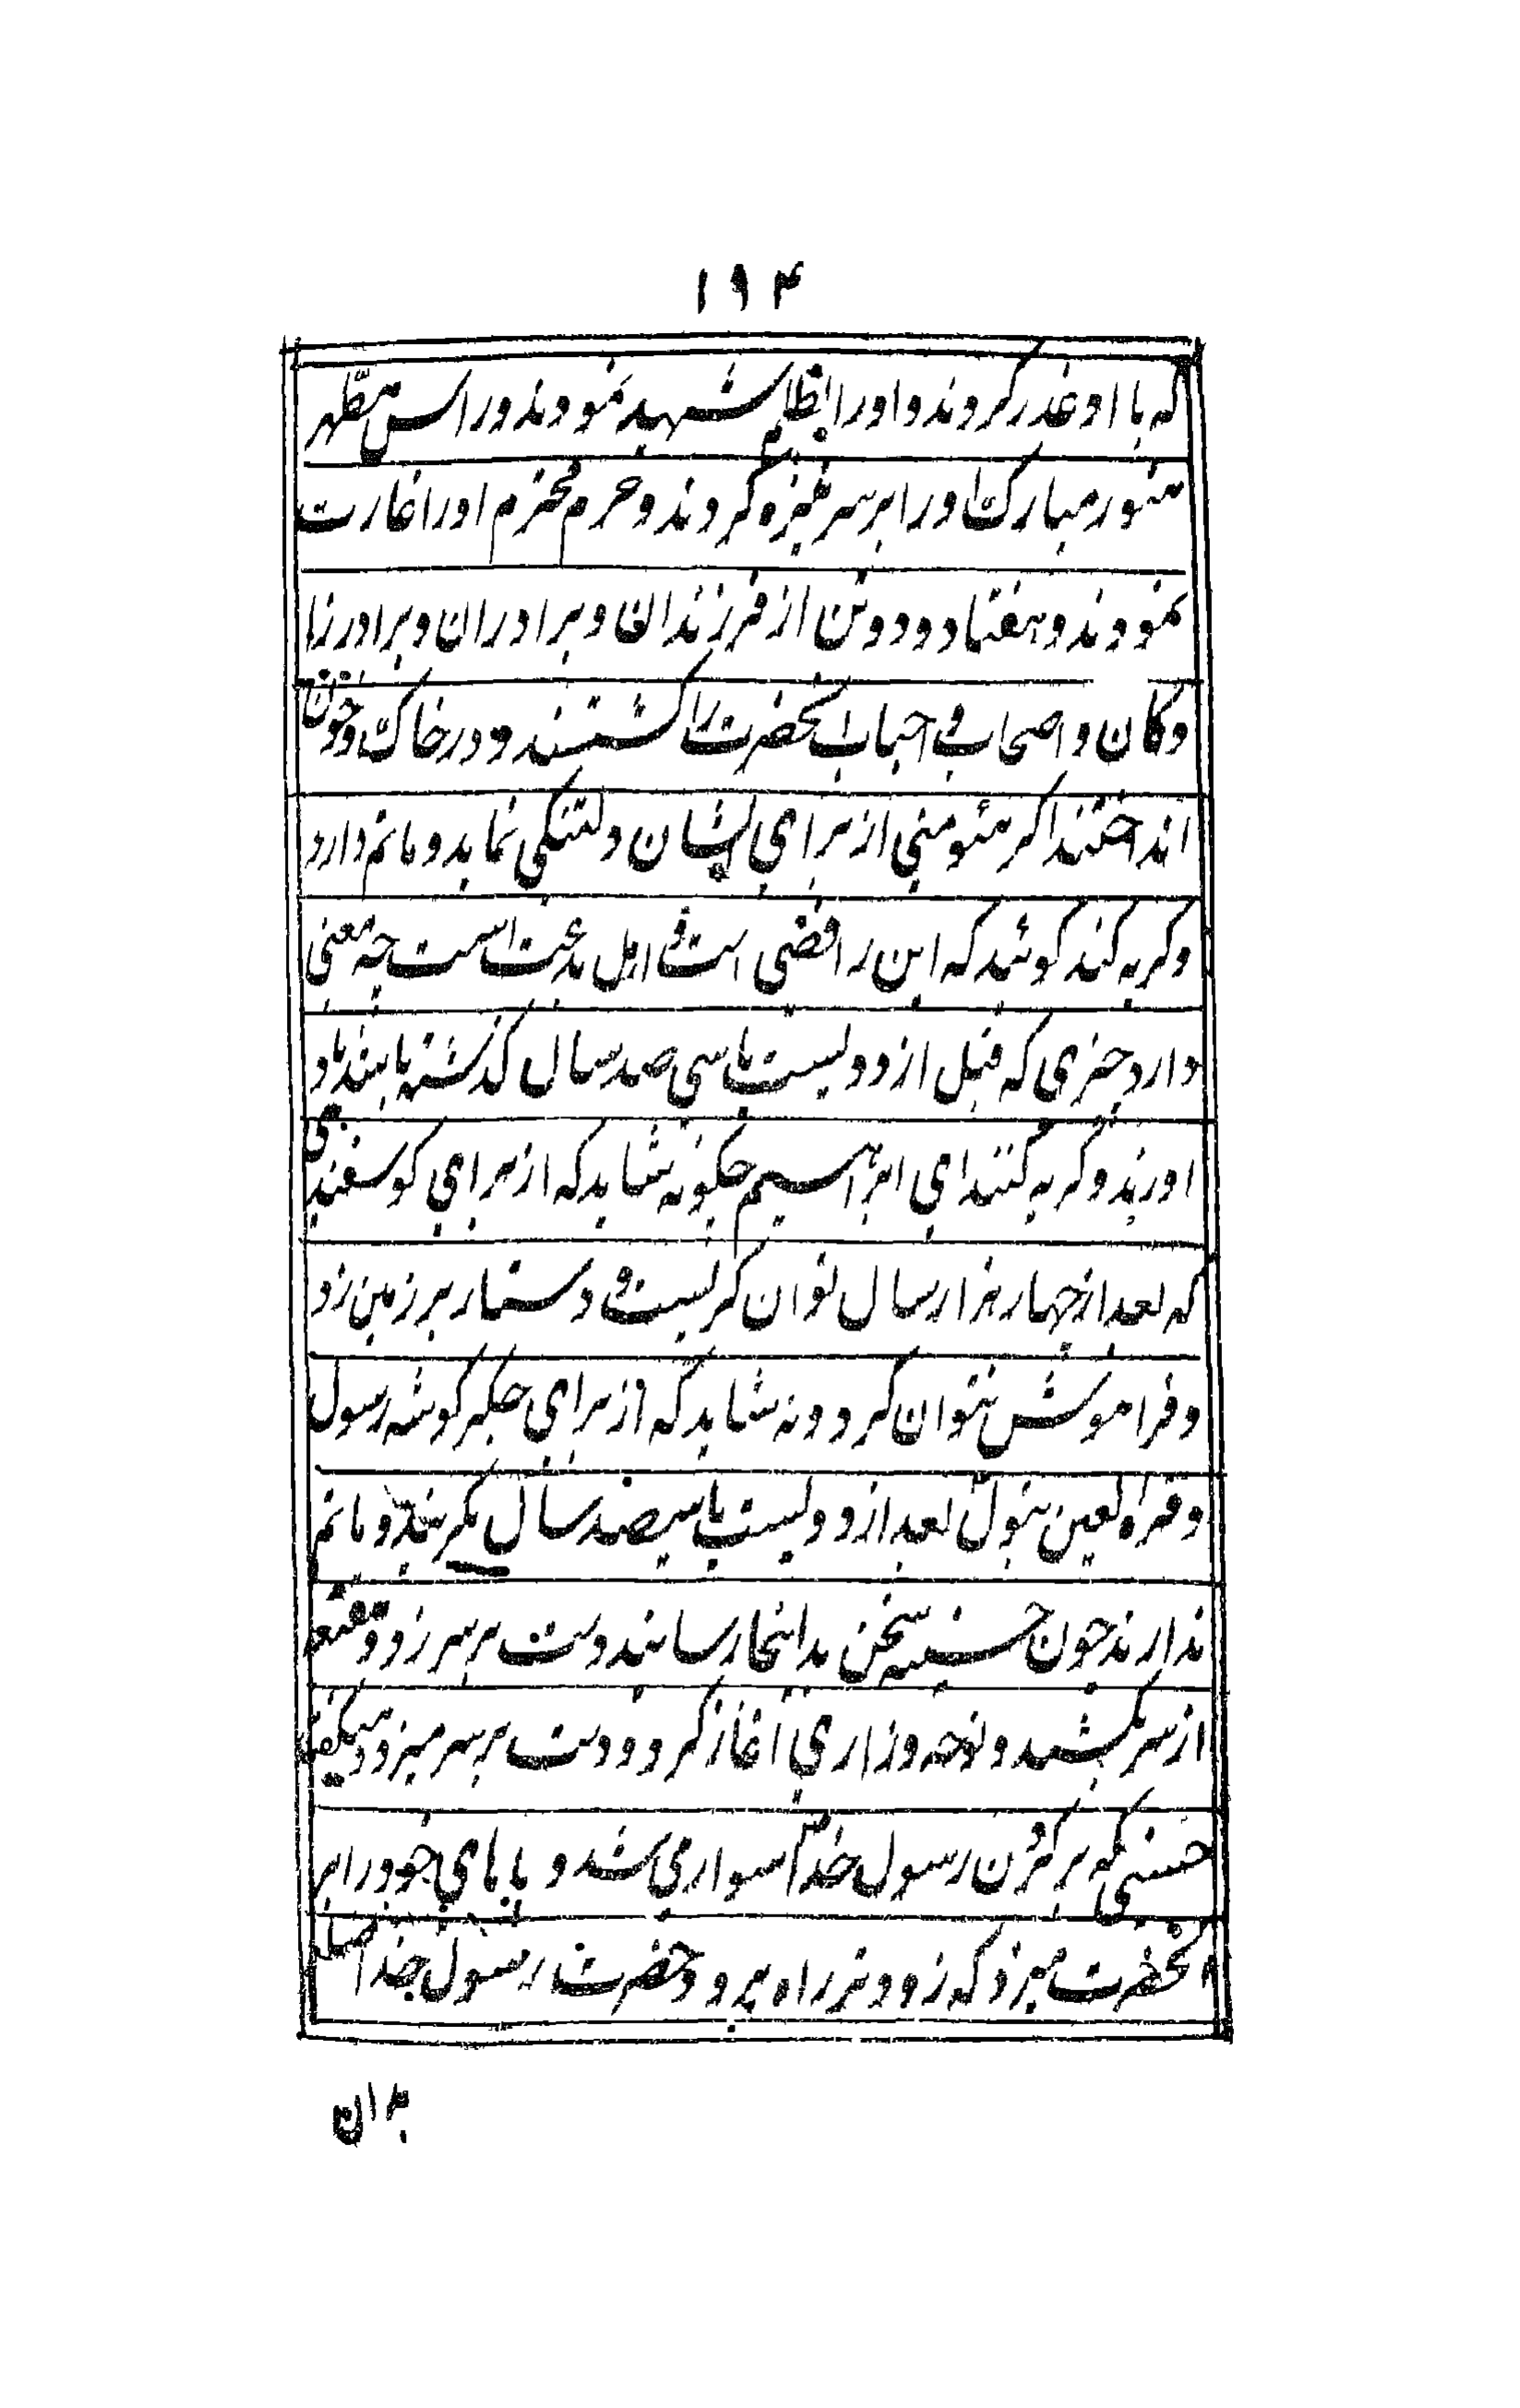 ۱۹۴
که با او غدر کردند و اورا بظلم شهید نمودند و راس مطهر
منور مبارک اورا بر سر نیزه کردند و حرم محترم اورا غارت
نمودند و هفتاد و دو تن از فرزندان و برادران و برادرزا
دکان و اصحاب و احباب آنحضرت را کشتند و در خاک و خون
انداختند اکر مئومنی از برای ایشان دلتنکی نماید و ماتم دارد
و کریه کند کویند که این رافضی است و اهل بدعت است چه معنی
دارد چیزی که قبل از دویست یا سی صد سال کذشته باشد یاد
اورند و کریه کنند ای ابراهیم چکونه شاید که از برای کوسفندی
که بعد از چهار هزار سال توان کریست و دستار بر زمین زد
و فراموش نتوان کرد و نه شاید که از برای جکر کوشه رسول
و قرة العین بتول بعد از دویست یا سیصد سال بکریند و ماتم
ندارند چون حسنیه سخن بدانجا رسانید دست بر سر زد و مقنعه
از سر بکشید و نوحه و زاری آغاز کرد و دست بر سر میزد و میکفت
حسینی که بر کردن رسول خدا سوار می شد و پاهای خود را بر
آنحضرت میزد که زود تر راه برود حضرت رسول خدا صلی
بران